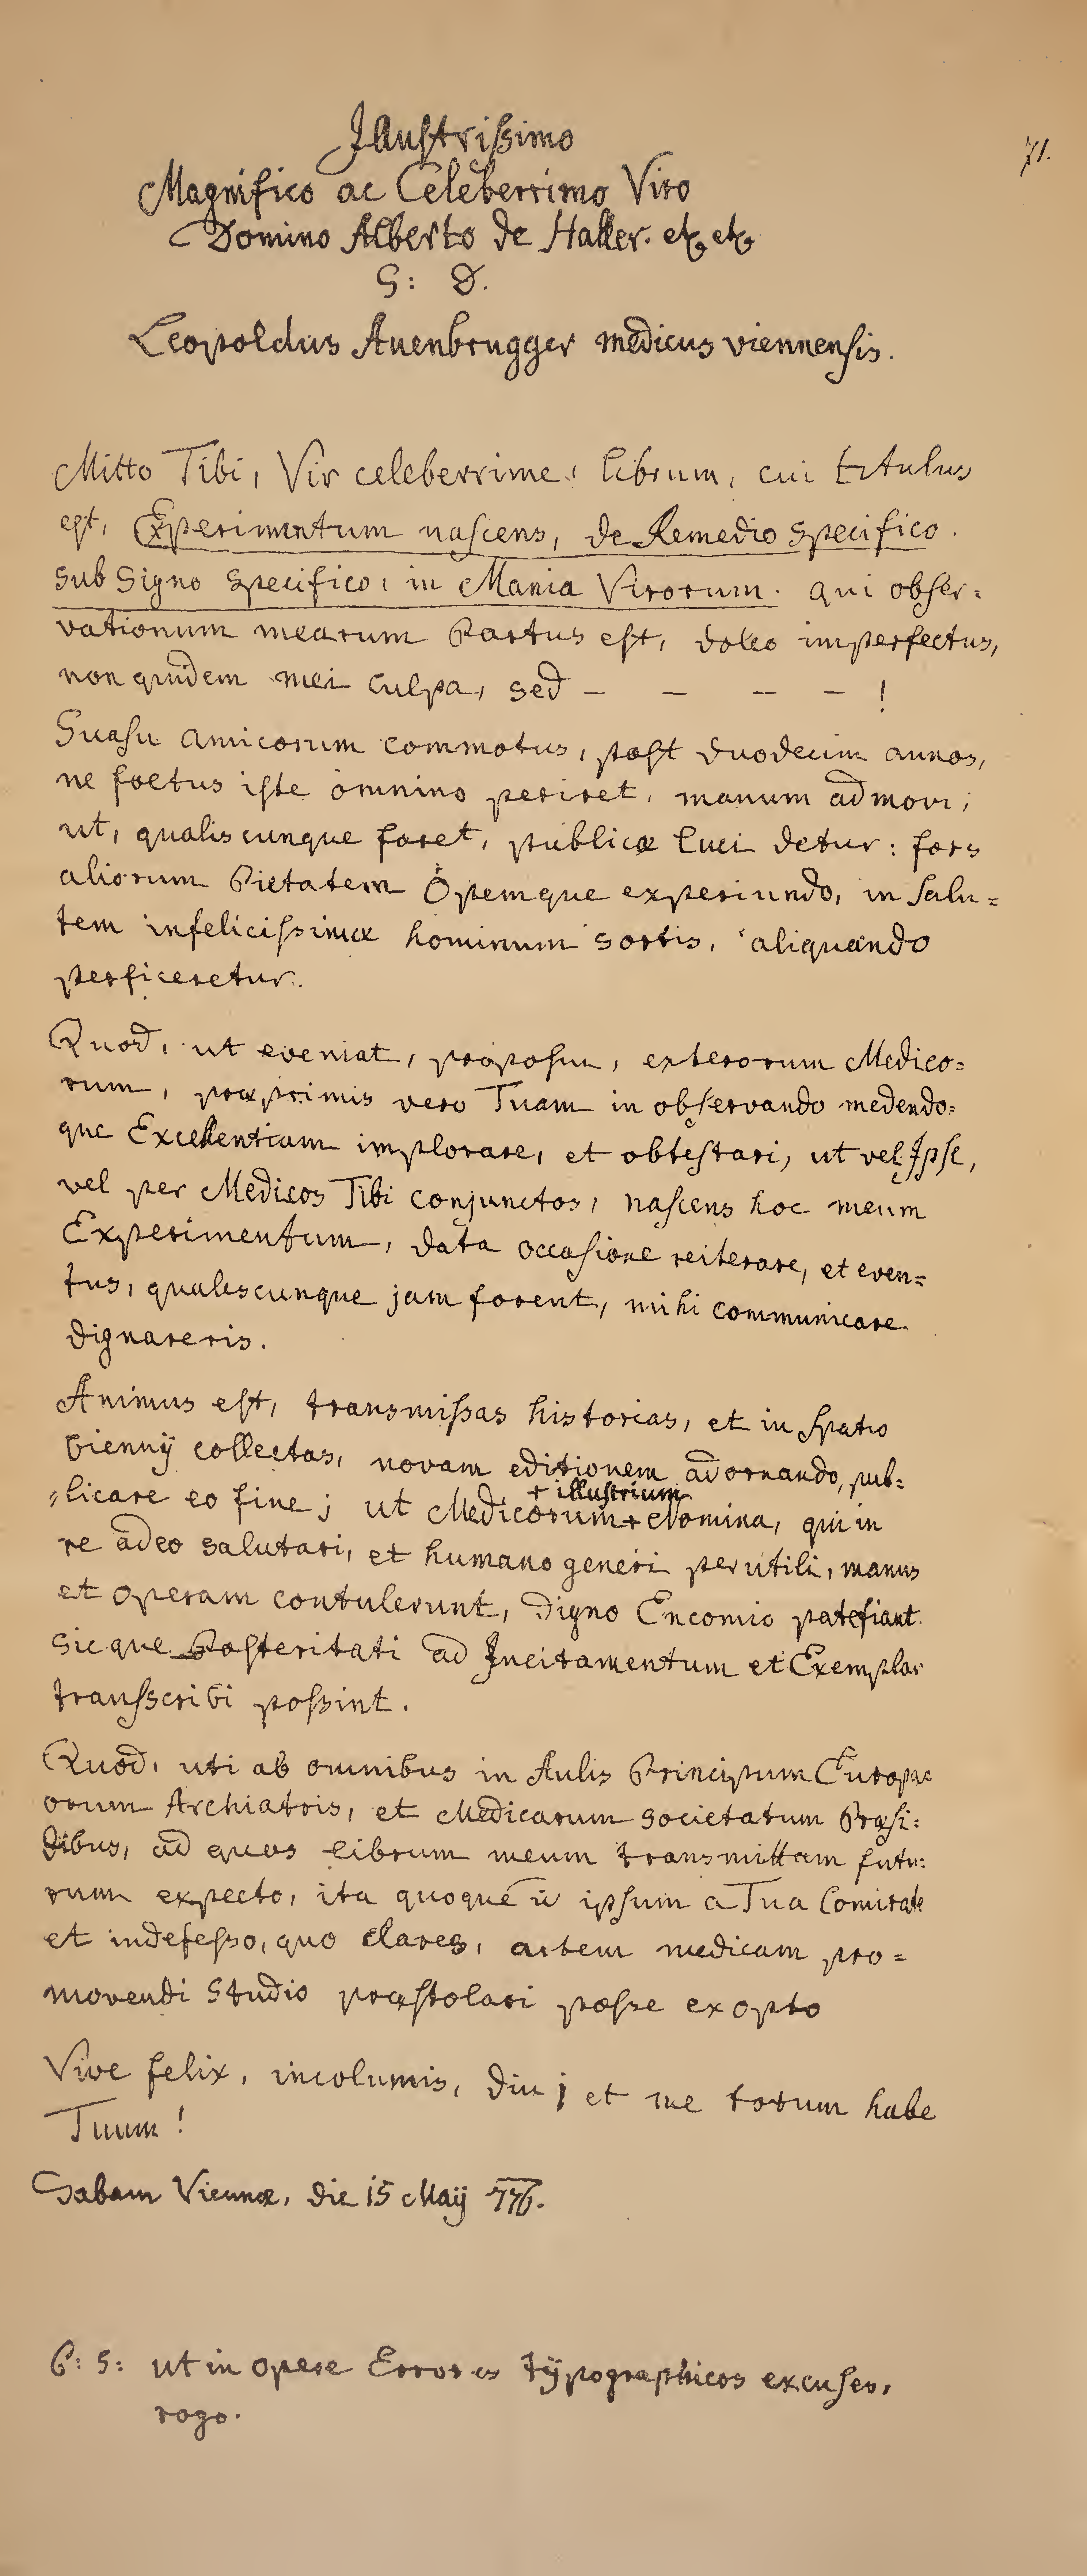 71.
Illustrissimo
Magnifico ac Celeberrimo Viro
Domino Alberto de Haller. etc, etc,
S: D.
Leopoldus Auenbrugger medicus viennensis.
Mitto Tibi, Vir celeberrime, librum, cui titulus
est, Experimentum nascens, de Remedio specifico.
sub signo specifico, in Mania Virorum. qui obser=
vationum mearum Partus est, doleo imperfectus,
non quidem mei culpa, sed – – – – !
Suasu amicorum commotus, post duodecim annos,
ne foetus iste omnino periret, manum admovi;
ut, qualiscunque foret, publicæ luci detur: fors
aliorum Pietatem Opemque experiundo, in salu=
tem infelicissimæ hominum sortis, aliquando
perficeretur.
Quod, ut eveniat, proposui, exterorum Medico=
rum, præprimis vero Tuam in observando medendo=
que Excellentiam implorare, et obtestari, ut vel Ipse,
vel per Medicos Tibi conjunctos, nascens hoc meum
Experimentum, data occasione reiterare, et even=
tus, qualescunque jam forent, mihi communicare
dignareris.
Animus est, transmissas historias, et in spatio
biennij collectas, novam editionem adornando, pub=
licare eo fine; ut Medicorum + Nomina, qui in
+ illustrium
re adeo salutari, et humano generi perutili, manus
et operam contulerunt, digno Encomio patefiant.
sicque Posteritati ad Incitamentum et Exemplar
transscribi possint.
Quod, uti ab omnibus in Aulis Principum Europæ
orum Archiatris, et Medicarum societatum Præsi=
dibus, ad quos librum meum transmittam futu=
rum expecto, ita quoque ipsum a Tua Comitate
et indefesso, quo clares, artem medicam pro=
movendi studio præstolari posse exopto
Vive felix, incolumis, diu; et me totum habe
Tuum!
Dabam Viennæ, die 15 Maij 776.
P: S: ut in opere Errores typographicos excuses,
rogo.